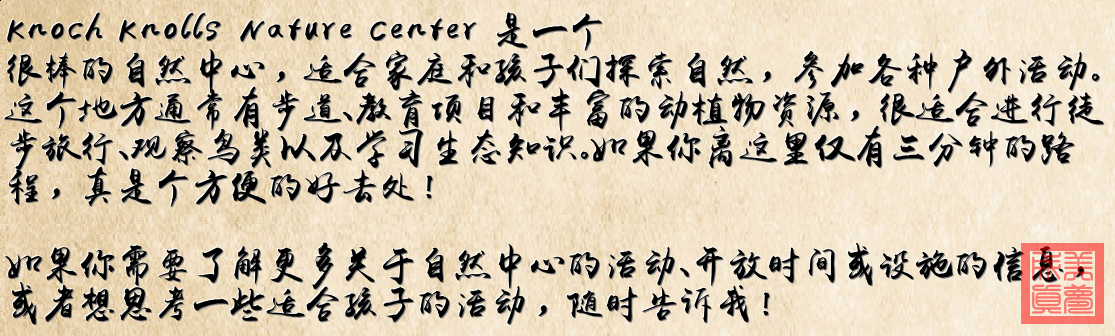 Knoch Knolls Nature Center 是一个
很棒的自然中心，适合家庭和孩子们探索自然，参加各种户外活动。
这个地方通常有步道、教育项目和丰富的动植物资源，很适合进行徒
步旅行、观察鸟类以及学习生态知识。如果你离这里仅有三分钟的路
程，真是个方便的好去处！
如果你需要了解更多关于自然中心的活动、开放时间或设施的信息，
或者想思考一些适合孩子的活动，随时告诉我！